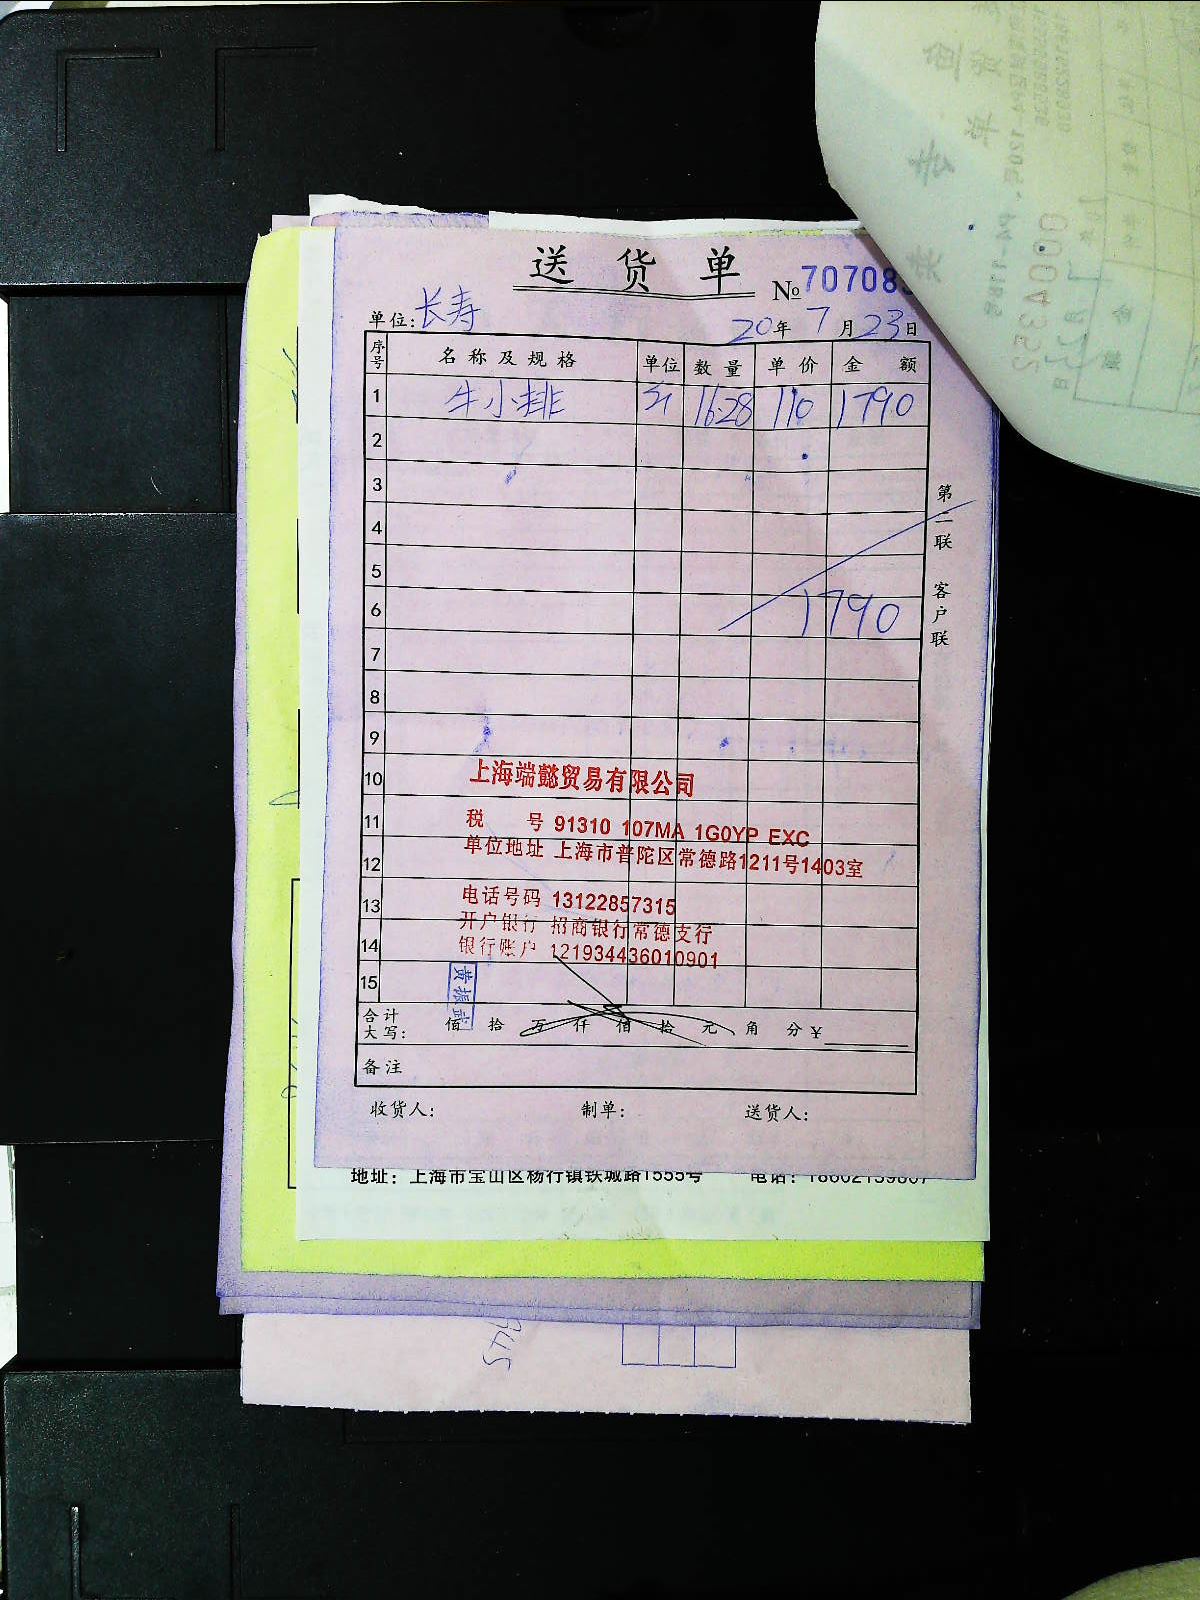 送货单
№70708
单位:长寿
20年7月23日
序号 名称及规格 单位 数量 单价 金额
1 牛小排 斤 16.28 110 1790
2
3
4
5
6 1790
7
8
9
10
11
12
13
14
15
第二联 客户联
上海端懿贸易有限公司
税 号 91310 107MA 1G0YP EXC
单位地址 上海市普陀区常德路1211号1403室
电话号码 13122857315
开户银行 招商银行常德支行
银行账户 121934436010901
黄振武
合计大写: 佰 拾 万 仟 佰 拾 元 角 分 ¥
备注
收货人: 制单: 送货人:
地址：上海市宝山区杨行镇铁城路1555号 电话：
0004352